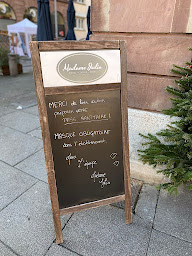 Madame Delia
MERCI de bien vouloir
présenter votre
PASS SANITAIRE !
MASQUE OBLIGATOIRE
dans l'établissement
L'équipe
Madame
Delia